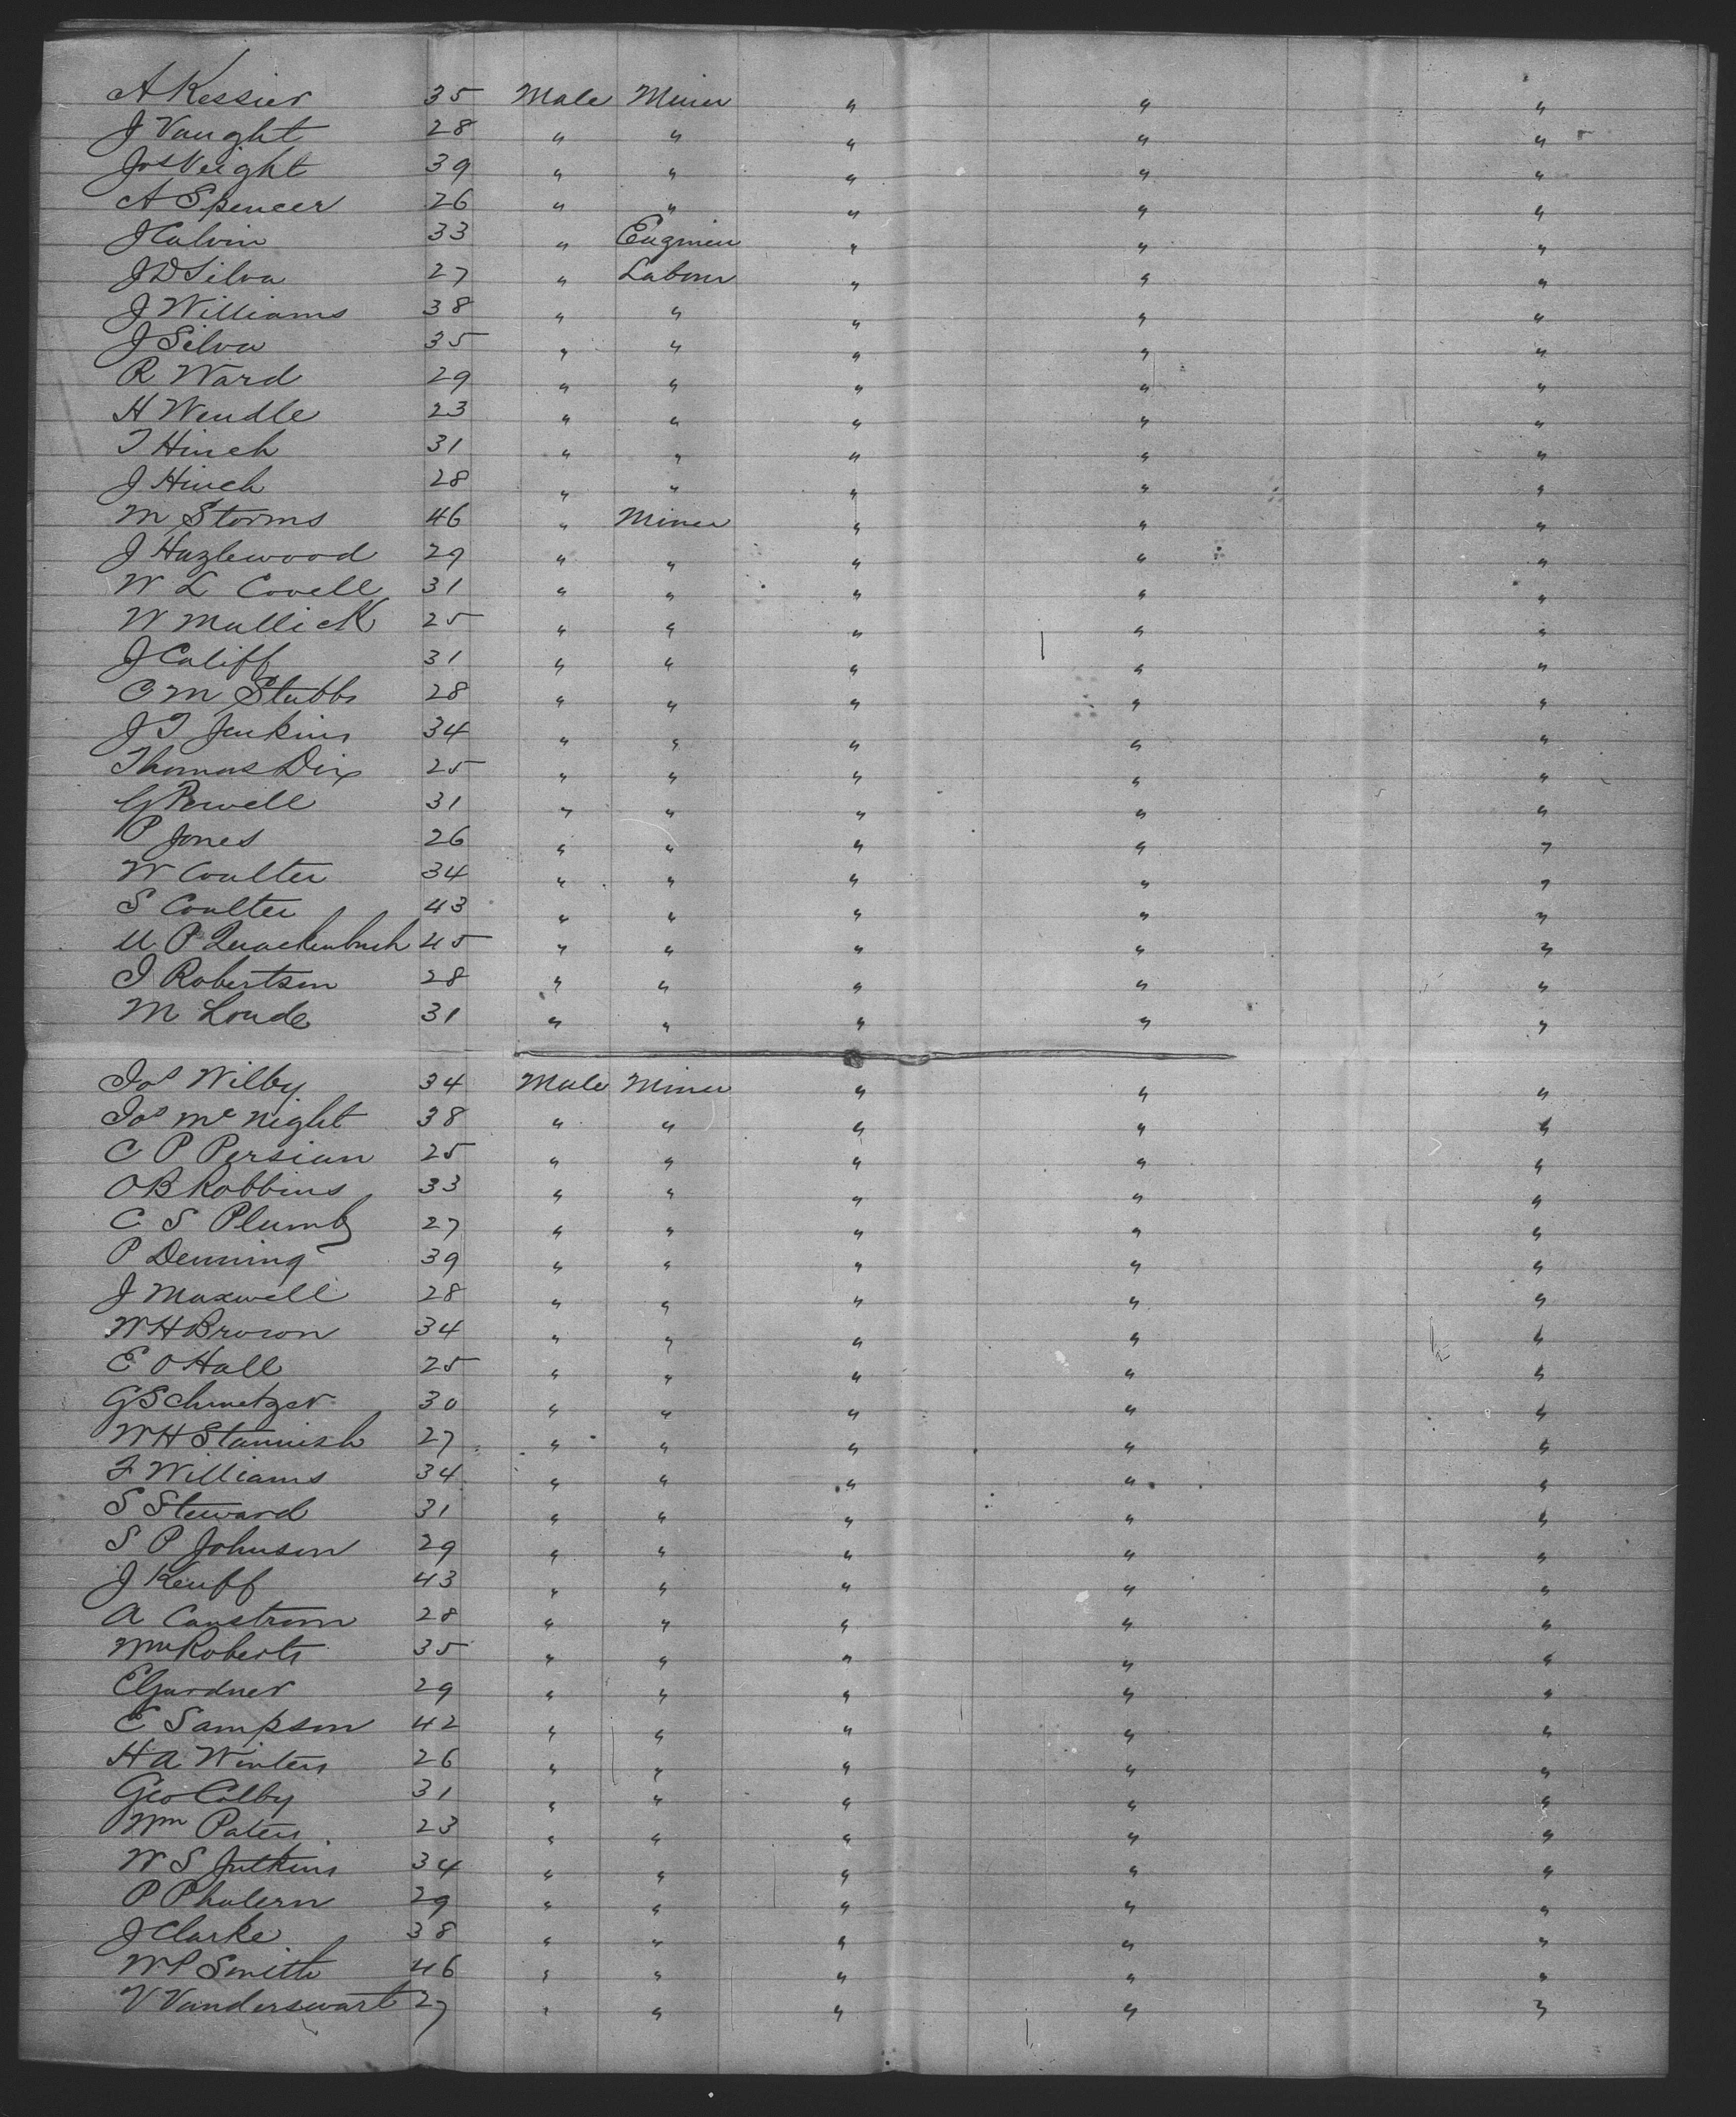 A Kessier 35 Male Miner " " "
J Vaught 28 " " " " "
Jos Veight 39 " " " " "
A Spencer 26 " " " " "
J Calvin 33 " Enginien " " "
J D Silva 27 " Labour " " "
J Williams 38 " " " " "
J Silva 35 " " " " "
R Ward 29 " " " " "
H Wendle 23 " " " " "
T Hinch 31 " " " " "
J Hinch 28 " " " " "
M Storms 46 " Miner " " "
J Hazlewood 29 " " " " "
W L Covell 31 " " " " "
W Mullick 25 " " " " "
J Califf 31 " " " " "
C M Stubbs 28 " " " " "
J T Jenkins 34 " " " " "
Thomas Dix 25 " " " " "
G Powell 31 " " " " "
P Jones 26 " " " " "
W Coulter 34 " " " " "
S Coulter 43 " " " " "
U P Quackenbush 45 " " " " "
J Robertson 28 " " " " "
M Loude 31 " " " " "
Jos Wilby 34 Male Miner " " "
Jos Mc Night 38 " " " " "
C P Persian 25 " " " " "
O B Robbins 33 " " " " "
C S Plumb 27 " " " " "
P Denning 39 " " " " "
J Maxwell 28 " " " " "
W H Brown 34 " " " " "
E O Hall 25 " " " " "
G Schmetzer 30 " " " " "
W H Stannish 27 " " " " "
F Williams 34 " " " " "
S Steward 31 " " " " "
S P Johnson 29 " " " " "
J Keuff 43 " " " " "
A Canstrom 28 " " " " "
Wm Roberts 35 " " " " "
E Gardner 29 " " " " "
E Sampson 42 " " " " "
H A Winters 26 " " " " "
Geo Colby 31 " " " " "
Wm Paters 23 " " " " "
W S Jutkins 34 " " " " "
P Phalern 29 " " " " "
J Clarke 38 " " " " "
W P Smith 46 " " " " "
V Vanderswart 27 " " " " "